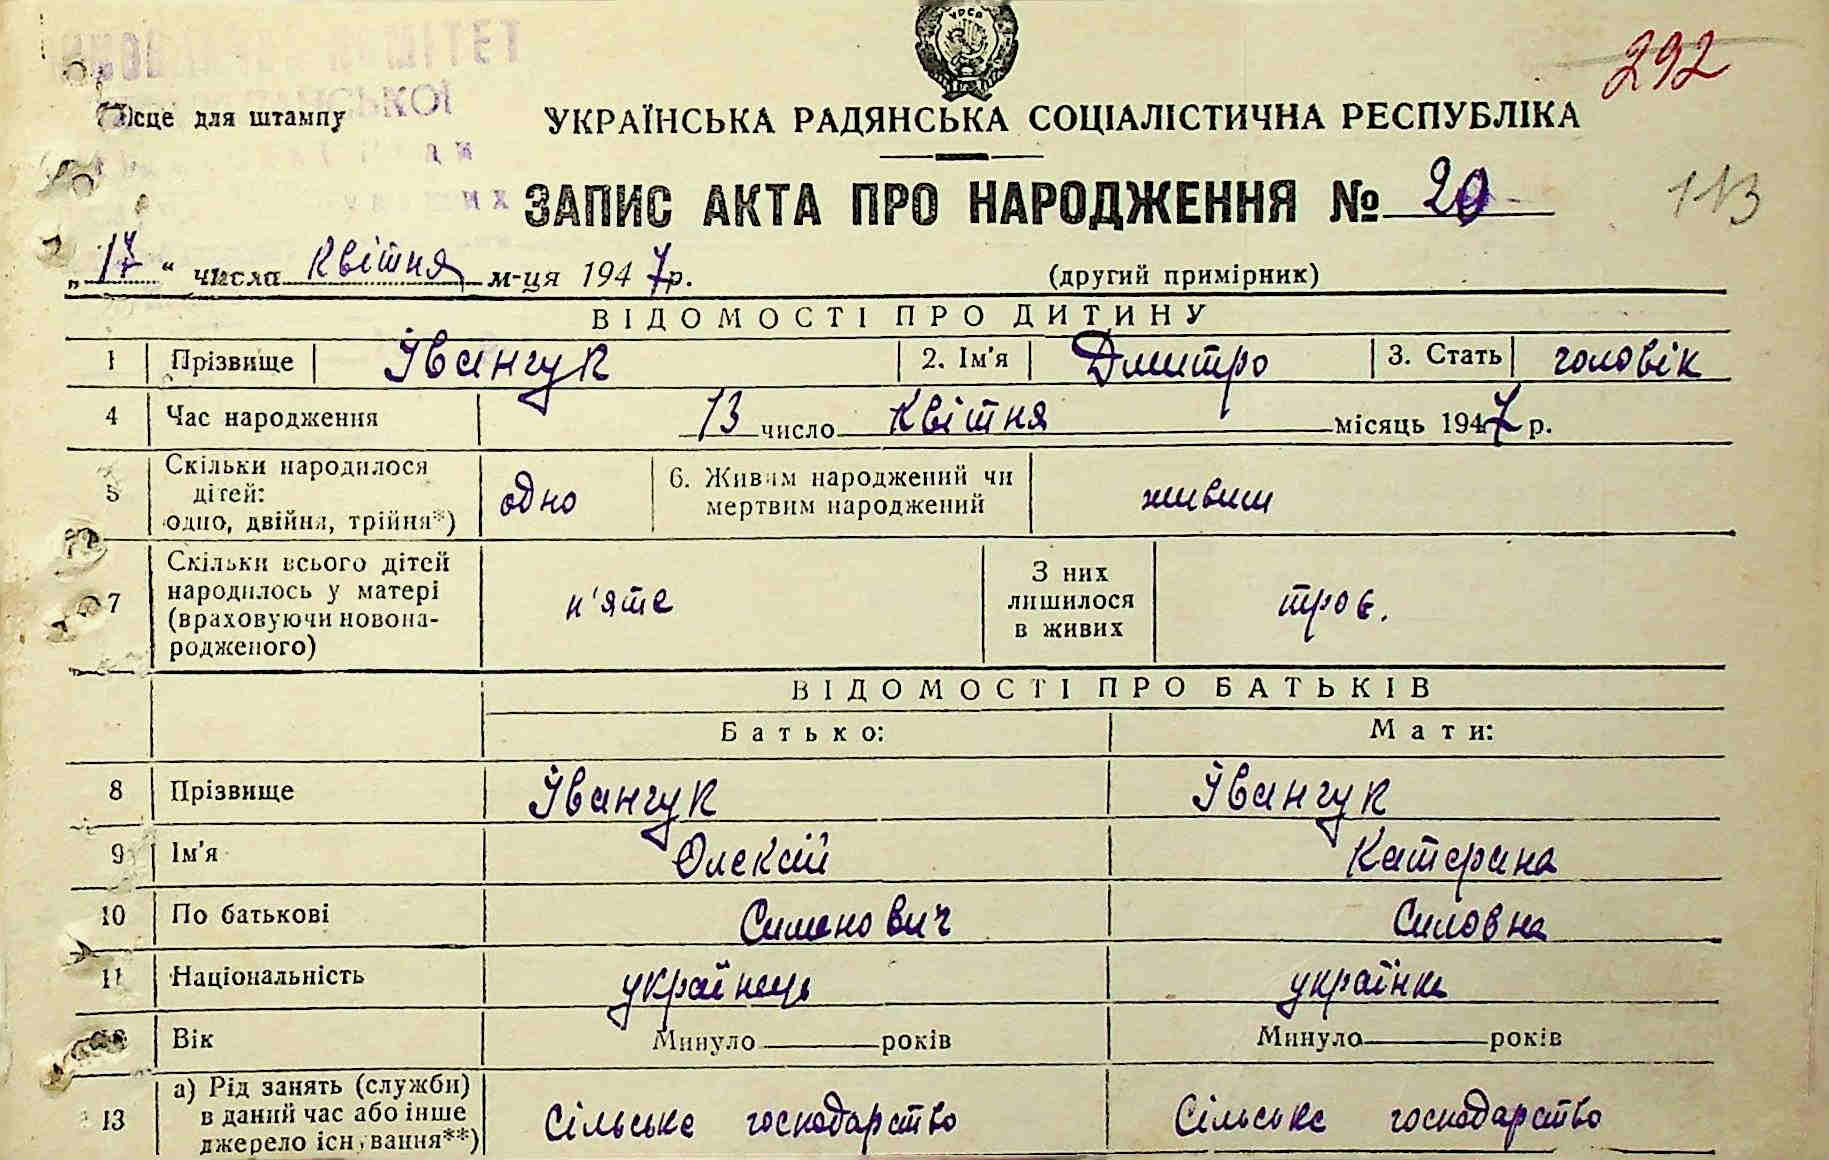 УРСР
КОМІТЕТ
292
Місце для штампу
УКРАЇНСЬКА РАДЯНСЬКА СОЦІАЛІСТИЧНА РЕСПУБЛІКА
ЗАПИС АКТА ПРО НАРОДЖЕННЯ № 20
113
„17“ числа квітня м-ця 1947р.
(другий примірник)
ВІДОМОСТІ ПРО ДИТИНУ
1 Прізвище Іванчук 2. Ім'я Дмитро 3. Стать чоловік
4 Час народження 13 число квітня місяць 1947 р.
5 Скільки народилося дітей: одно, двійня, трійня*) одно 6. Живим народжений чи мертвим народжений живим
7 Скільки всього дітей народилось у матері (враховуючи новонародженого) п'яте З них лишилося в живих троє.
ВІДОМОСТІ ПРО БАТЬКІВ
Батько: Мати:
8 Прізвище Іванчук Іванчук
9 Ім'я Олексій Катерина
10 По батькові Сименович Силовна
11 Національність українець українка
12 Вік Минуло років Минуло років
13 а) Рід занять (служби) в даний час або інше джерело існування**) Сільське господарство Сільське господарство